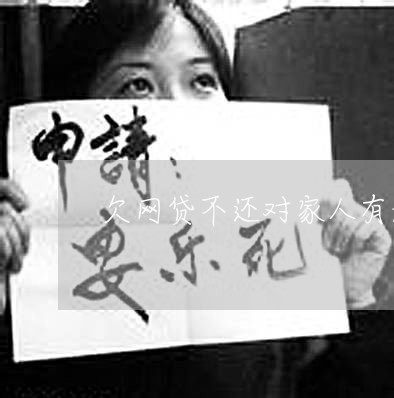 申請:
欠网贷不还对家人有
要乐死